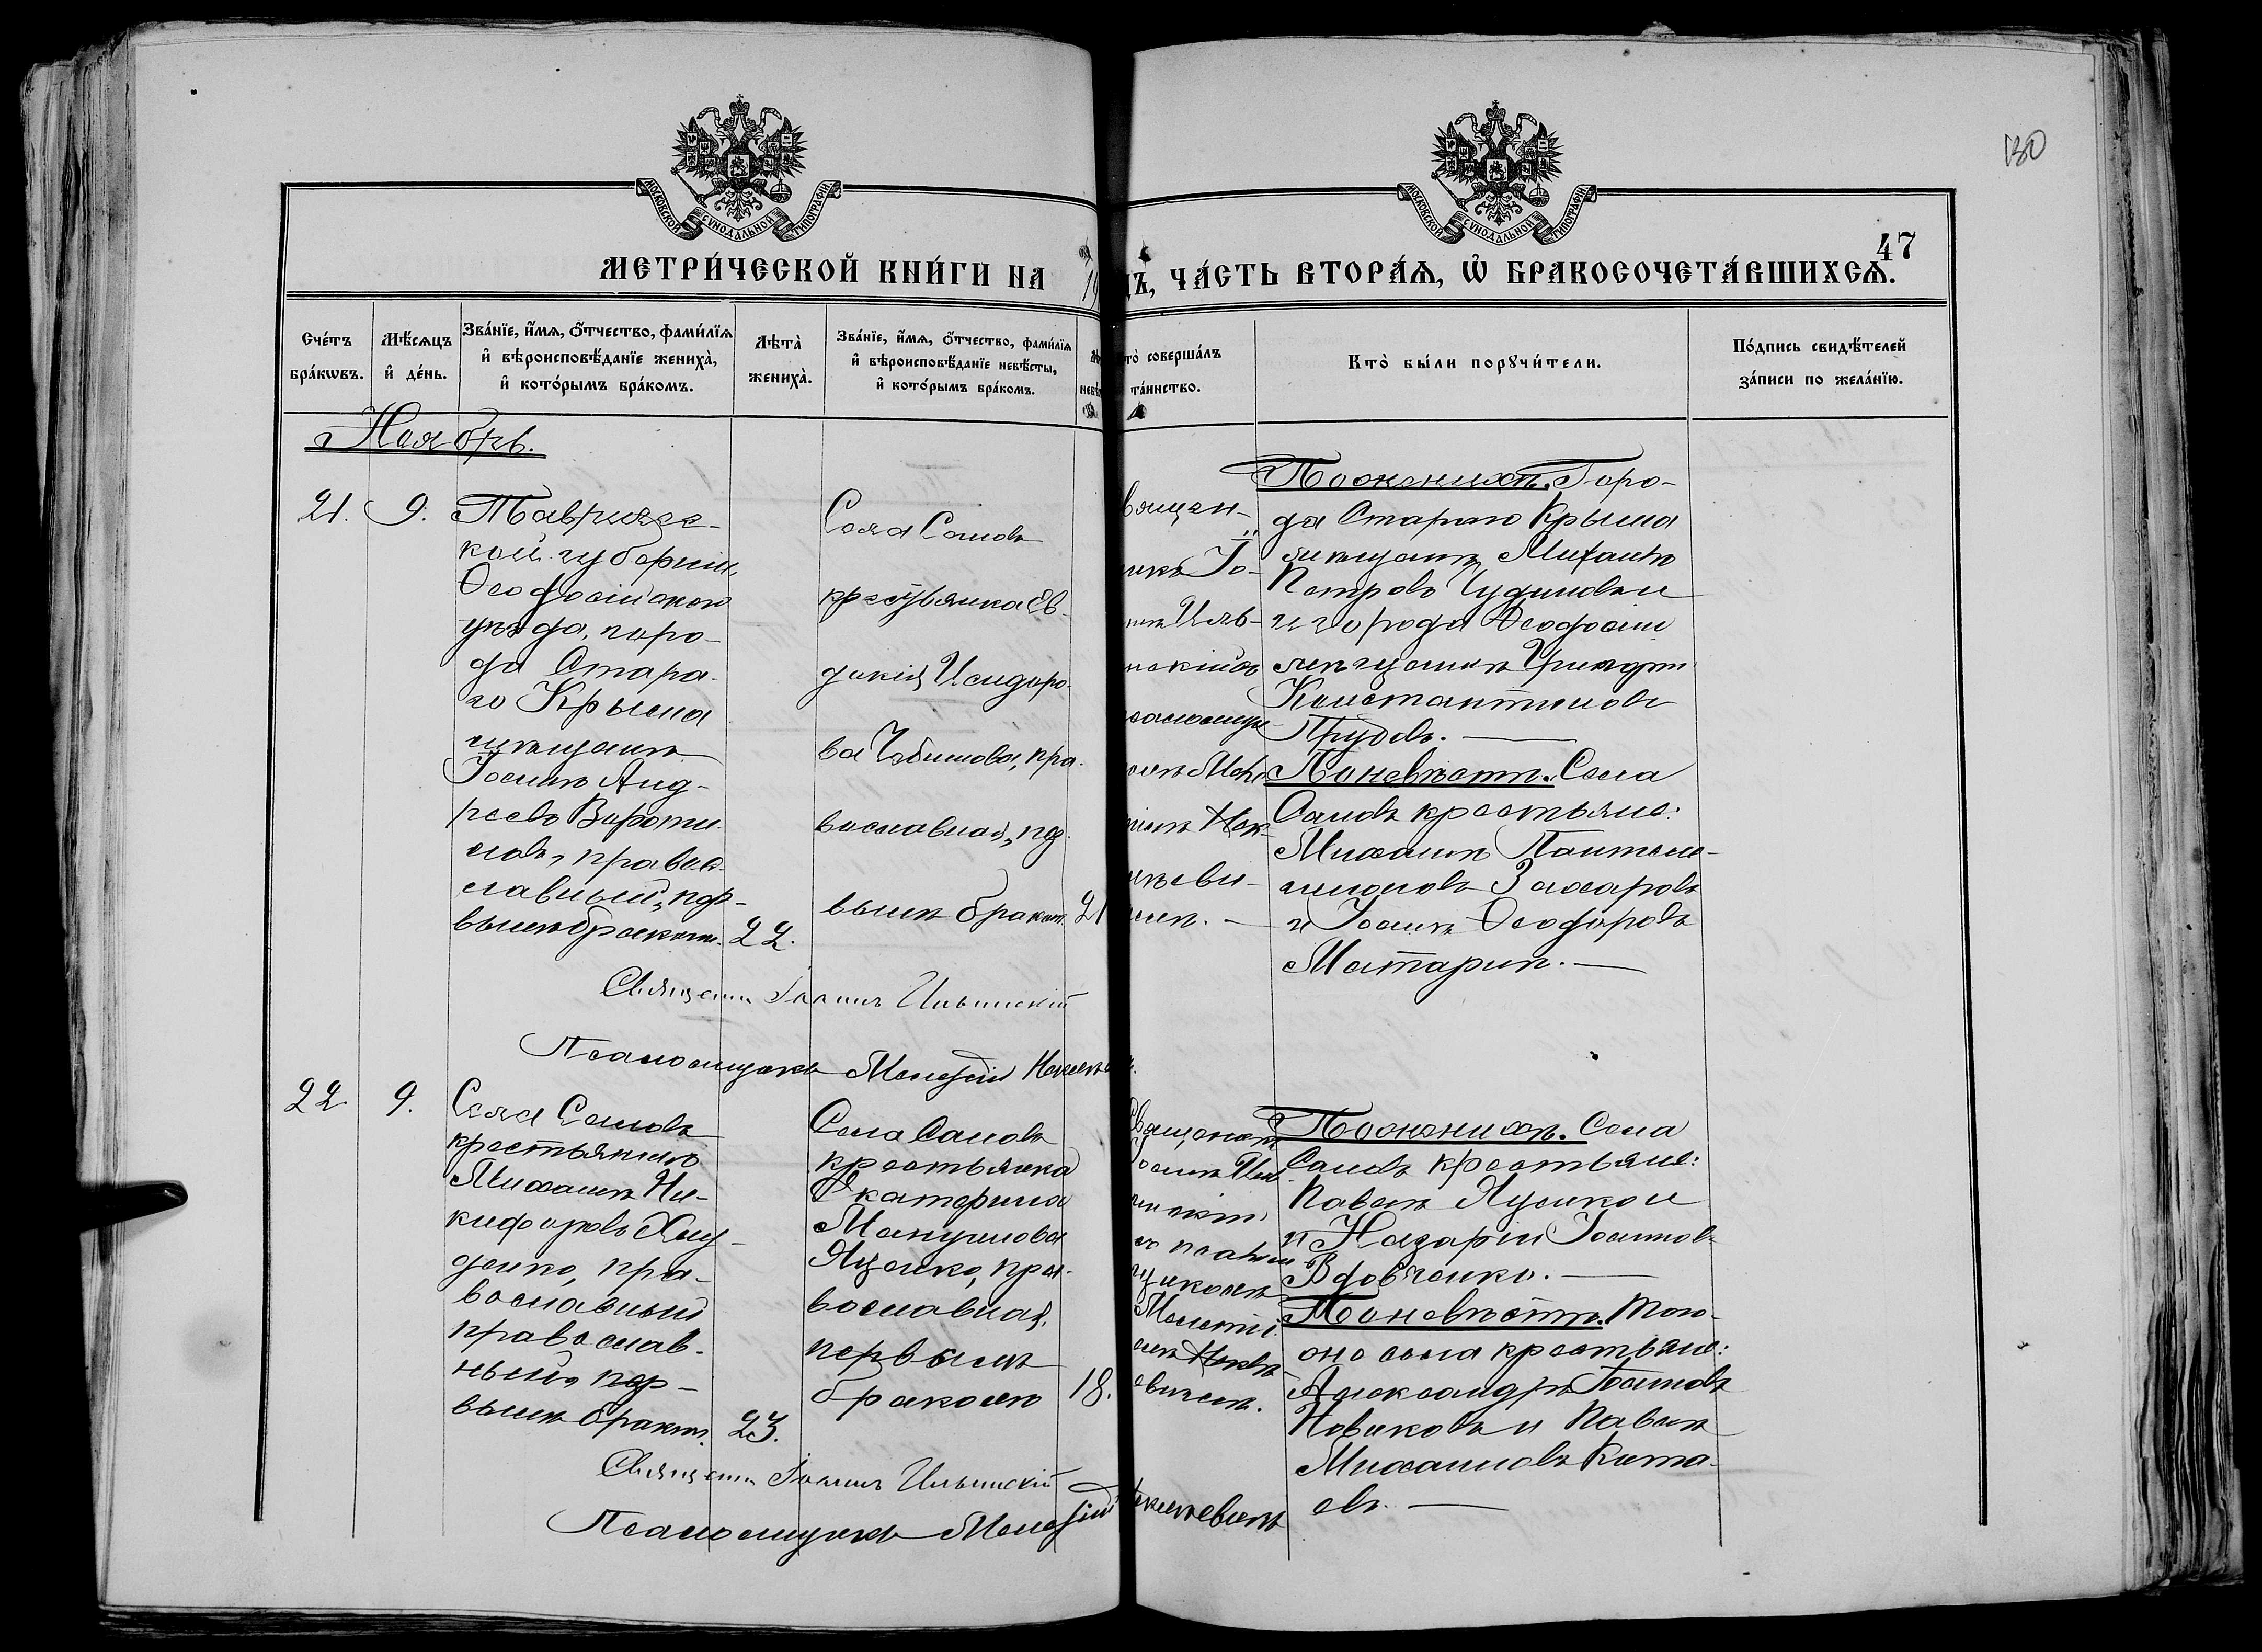 130
47
МОСКОВСКОЙ СУНОДАЛЬНОЙ ТИПОГРАФІИ
МОСКОВСКОЙ СУНОДАЛЬНОЙ ТИПОГРАФІИ
МЕТРИ́ЧЕСКОЙ КНИ́ГИ НА 19
ДЪ, ЧА́СТЬ ВТОРА́Я, Ѡ БРАКОСОЧЕТА́ВШИХСЯ.
Сче́тъ
бра́кѡвъ.
Мѣ́сяцъ
и҆ де́нь.
Зва́нїе, и҆́мя, ѻ҆́тчество, фами́лїя
и҆ вѣроисповѣ́данїе жениха̀,
и҆ кото́рымъ бра́комъ.
Лѣта̀
жениха̀.
Зва́нїе, и҆́мя, ѻ҆́тчество, фами́лїя
и҆ вѣроисповѣ́данїе невѣ́сты,
и҆ кото́рымъ бра́комъ.
то̀ соверша́лъ
та́инство.
Кто̀ бы́ли порꙋчи́тели.
По́дпись свидѣ́телей
за́писи по жела́нїю.
Ноябрь.
21. 9.
Тавричес-
кой губерніи,
Ѳеодосійскаго
уѣзда, горо-
да Стара-
го Крыма
мѣщанинъ
Іоаннъ Анд-
реевъ Вороти-
ловъ, право-
славный, пер-
вымъ бракомъ. 22.
Села Саловъ
крестьянка Ев-
докія Исидоро-
ва Чабанова, пра-
вославная, пер-
вымъ бракомъ. 21
вящен-
икъ Іо-
ннъ Иль-
инскій съ
псаломщи-
омъ Меле
тіемъ Нек-
лѣеви-
чемъ. —
По женихѣ: Горо-
да Стараго Крыма
мѣщанинъ Михаилъ
Петровъ Чудиновъ и
и города Ѳеодосіи
мѣщанинъ Григорій
Константиновъ
Прудовъ. —
По невѣстѣ: Села
Саловъ крестьяне:
Михаилъ Пантеле-
имоновъ Захаровъ
и Іоаннъ Ѳеодоровъ
Матаринъ. —
Священникъ Іоаннъ Ильинскій
Псаломщикъ Мелетій
22 9.
Села Саловъ
крестьянинъ
Михаилъ Ни-
кифоровъ Хиу-
денко, пра-
вославный
православ-
ный, пер-
вымъ бракомъ. 23.
Села Саловъ
крестьянка
Екатерина
Мануилова
Яценко, пра-
вославная,
первымъ
бракомъ 18.
Священникъ
Іоаннъ Иль-
инскій
съ псалом-
щикомъ
Мелетіемъ
евичемъ.
По женихѣ: Села
Саловъ крестьяне:
Павелъ Яценко и
и Назарій Іоанновъ
Вдовченко. —
По невѣстѣ: Того-
оно села крестьяне:
Александръ Іоанновъ
Новиковъ и Павелъ
Михаиловъ Кита-
евъ. —
Священникъ Іоаннъ Ильинскій
Псаломщикъ Мелетій